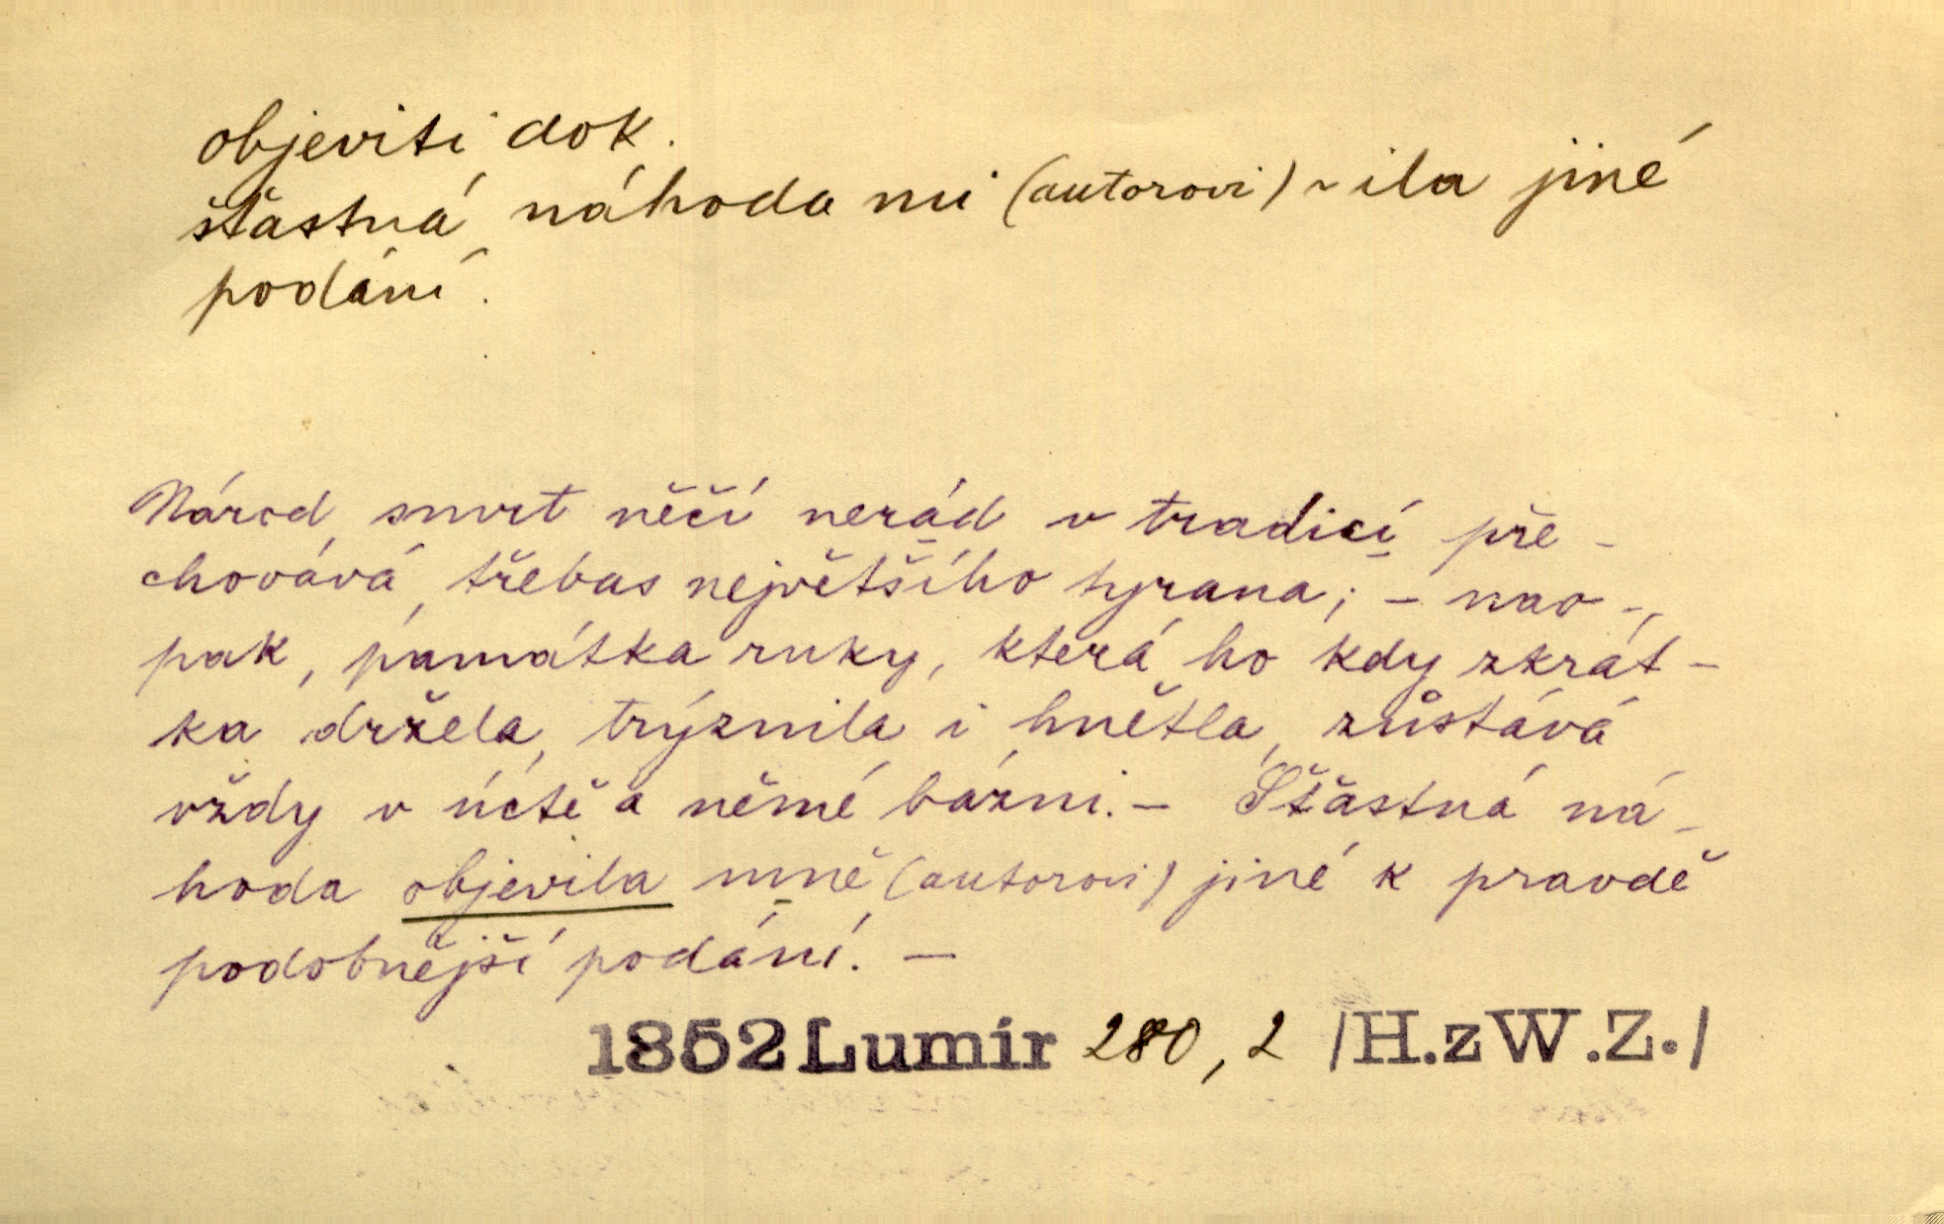 objeviti dok.
šťastná náhoda mi (autorovi) ~ ila jiné
podání.
Národ smrt něčí nerád v tradici pře-
chovává, třebas největšího tyrana; – nao-
pak, památka ruky, která ho kdy zkrát-
ka držela, trýznila i hnětla, zůstává
vždy v úctě a němé bázni. – Šťastná ná-
hoda objevila mně (autorovi) jiné k pravdě
podobnější podání. –
1852 Lumír 280, 2 /H.z W.Z./